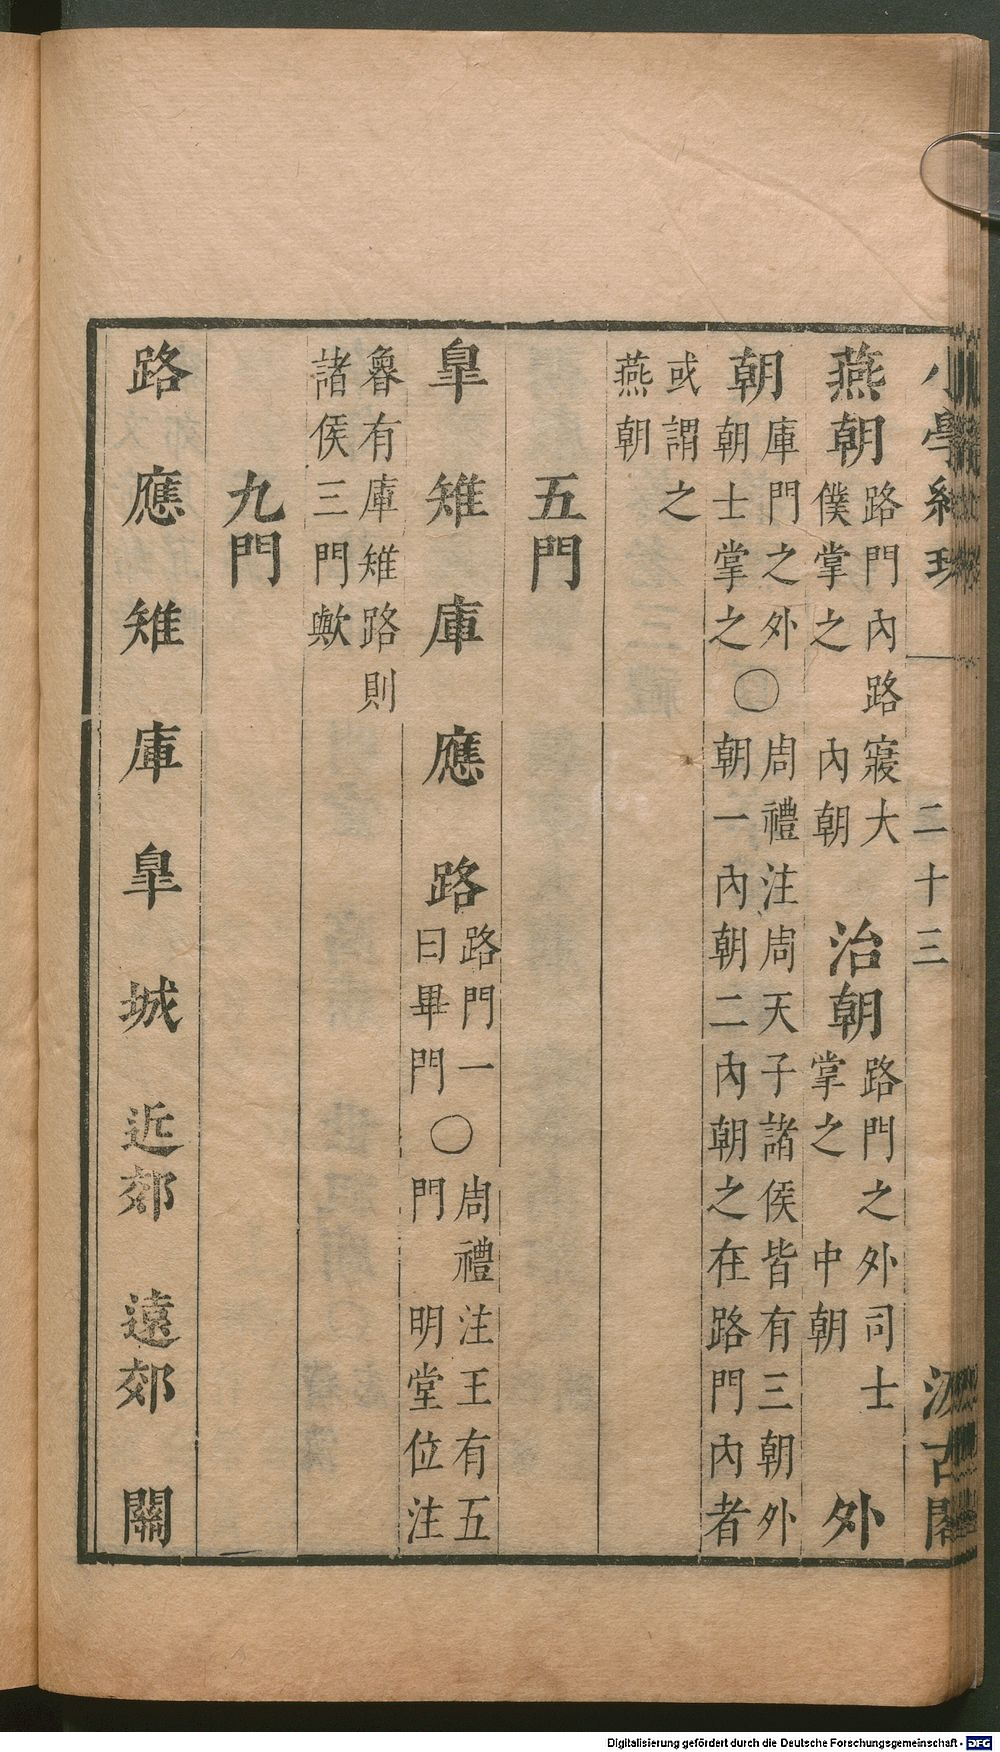 小學紺珠 二十三 汲古閣
燕朝 路門內路寢大僕掌之 內朝 治朝 路門之外司士掌之 中朝 外
朝 庫門之外朝士掌之 〇 周禮注周天子諸侯皆有三朝外朝一內朝二內朝之在路門內者
或謂之燕朝
五門
皐 雉 庫 應 路 路門一曰畢門 〇 周禮注王有五門 明堂位注
魯有庫雉路則諸侯三門歟
九門
路 應 雉 庫 皐 城 近郊 遠郊 關
Digitalisierung gefördert durch die Deutsche Forschungsgemeinschaft - DFG